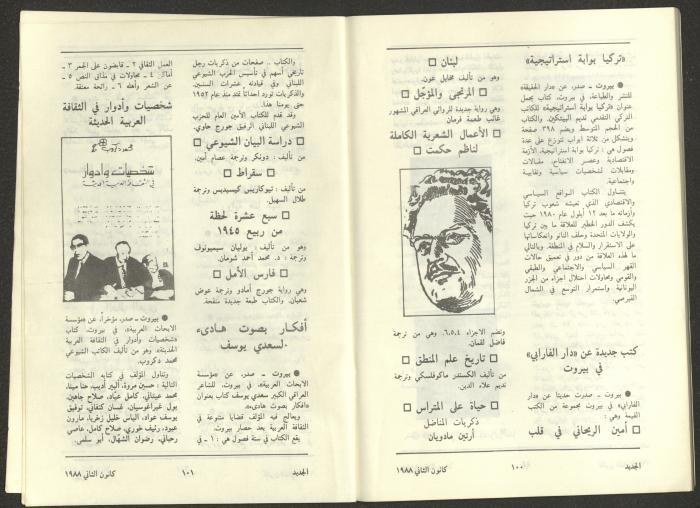 «تركيا بوابة استراتيجية»
● بيروت ـ صدر، عن «دار الحقيقة»
للنشر والطباعة، في بيروت، كتاب يحمل
عنوان «تركيا بوابة استراتيجية» للكاتب
التركي التقدمي نديم البيتنكين. والكتاب
من الحجم المتوسط ويضم ٣٩٨ صفحة
ويتشكل من ثلاثة ابواب تتوزع على عدة
فصول هي: تركيا بوابة استراتيجية، الأزمة
الاقتصادية وعصر الانفتاح، مقالات
ومقابلات لشخصيات سياسية ونقابية
واجتماعية.
يتناول الكتاب الواقع السياسي
والاقتصادي الذي تعيشه شعوب تركيا
وأزماته ما بعد ١٢ أيلول عام ١٩٨٠ حيث
يكشف الدور الخطير للعلاقة ما بين تركيا
والولايات المتحدة وحلف الناتو وانعكاساتها
على الاستقرار والسلام في المنطقة. وبالتالي
ما لهذه العلاقة من دور في تعميق حالات
القهر السياسي والاجتماعي والطبقي
والقومي ومحاولات احتلال اجزاء من الجزر
اليونانية واستمرار التوسع في الشمال
القبرصي.
كتب جديدة عن «دار الفارابي»
في بيروت
● بيروت ـ صدرت حديثا عن «دار
الفارابي» في بيروت مجموعة من الكتب
القيمة وهي:
□ أمين الريحاني في قلب
لبنان □
وهو من تأليف مخايل عون.
□ المرتجى والمؤجّل □
وهي رواية جديدة للروائي العراقي المشهور
غائب طعمة فرمان
□ الأعمال الشعرية الكاملة
لناظم حكمت □
وتضم الاجزاء ٦،٥،٤. وهي من ترجمة
فاضل لقمان.
□ تاريخ علم المنطق □
من تأليف الكسندر ماكوفلسكي وترجمة
نديم علاء الدين.
□ حياة على المتراس □
ذكريات المناضل
أرتين مادويان
الجديد ١٠٠ كانون الثاني ١٩٨٨
والكتاب .. صفحات من ذكريات رجل
تاريخي أسهم في تأسيس الحزب الشيوعي
اللبناني وفي قيادته عشرات السنين.
والذكريات تورد احداثاً تمتد منذ عام ١٩٥٢
حتى يومنا هذا.
وقد قدم للكتاب الأمين العام للحزب
الشيوعي اللبناني الرفيق جورج حاوي.
□ دراسة البيان الشيوعي □
من تأليف: دونكر وترجمة عصام أمين.
□ سقراط □
من تأليف: ثيوكاريس كيسيديس وترجمة
طلال السهيل.
□ سبع عشرة لحظة
من ربيع ١٩٤٥ □
وهو من تأليف: يوليان سيميونوف
وترجمة: د. محمد أحمد شومان.
□ فارس الأمل □
وهي رواية جورج أمادو وترجمة عوض
شعبان. والكتاب طبعة جديدة منقحة.
أفكار بصوت هادىء
لسعدي يوسف
● بيروت ـ صدر، عن «مؤسسة
الابحاث العربية»، في بيروت، للشاعر
العراقي الكبير سعدي يوسف كتاب بعنوان
«أفكار بصوت هادىء».
ويعالج فيه المؤلف قضايا متنوعة في
الثقافة العربية بعد حصار بيروت.
يقع الكتاب في ستة فصول هي: ١ ـ في
العمل الثقافي ٢ ـ قابضون على الجمر ٣ ـ
أماكن ٤ ـ محاولات في مذاق النص ٥ ـ
عن الشعر وأهله ٦ ـ رائحة معتقة.
شخصيات وأدوار في الثقافة
العربية الحديثة
محمد دكروب
شخصيات وأدوار
في الثقافة العربية الحديثة
● بيروت ـ صدر، مؤخراً، عن «مؤسسة
الابحاث العربية»، في بيروت، كتاب
«شخصيات وأدوار في الثقافة العربية
الحديثة». وهو من تأليف الكاتب الشيوعي
محمد دكروب.
وتناول المؤلف في كتابه الشخصيات
التالية: حسين مروة، ألبير أديب، حنا مينا،
محمد عيتاني، كامل عيّاد، صلاح جاهين،
يولي غيراغوسيان، غسان كنفاني، توفيق
يوسف عواد، الياس خليل زخريا، مارون
عبود، رئيف خوري، صلاح كامل، عاصي
رحباني، رضوان الشهّال، أبو سلمى.
الجديد ١٠١ كانون الثاني ١٩٨٨